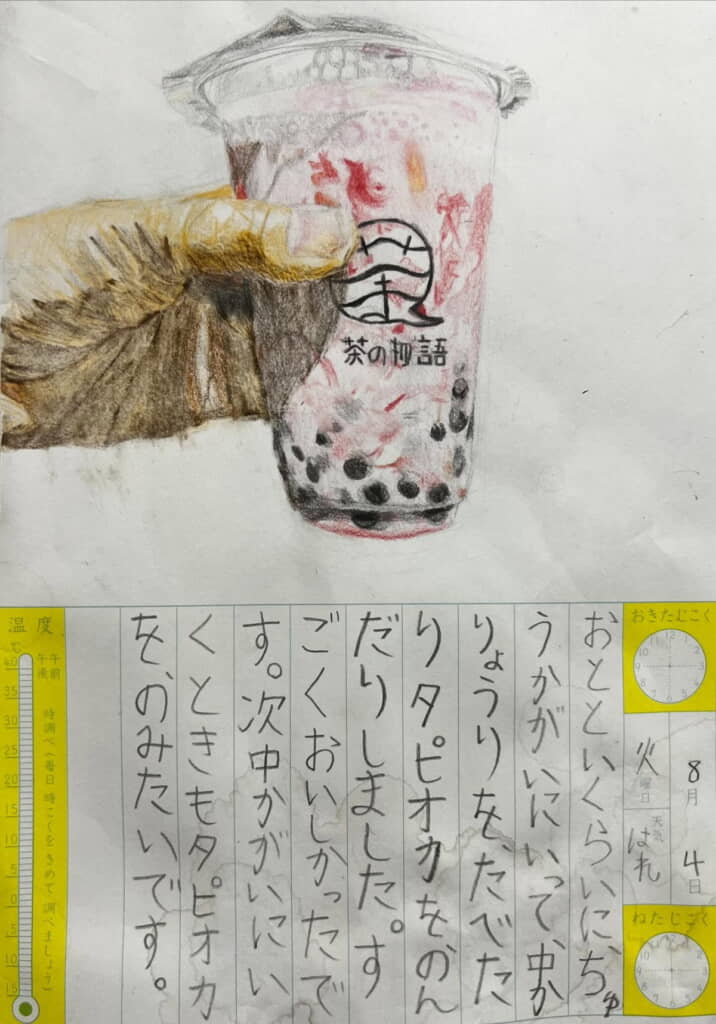 茶
茶の物語
おきたじこく
8月4日
火曜日
天気 はれ
ねたじこく
おとといくらいに、ちゅ
うかがいにいって、中か
りょうりを、たべた
りタピオカをのん
だりしました。す
ごくおいしかったで
す。次中かがいにい
くときもタピオカ
を、のみたいです。
温度
℃
午前
午後
時調べ(毎日 時こくを きめて 調べましょう)
40
35
30
25
20
15
10
5
0
5
10
15